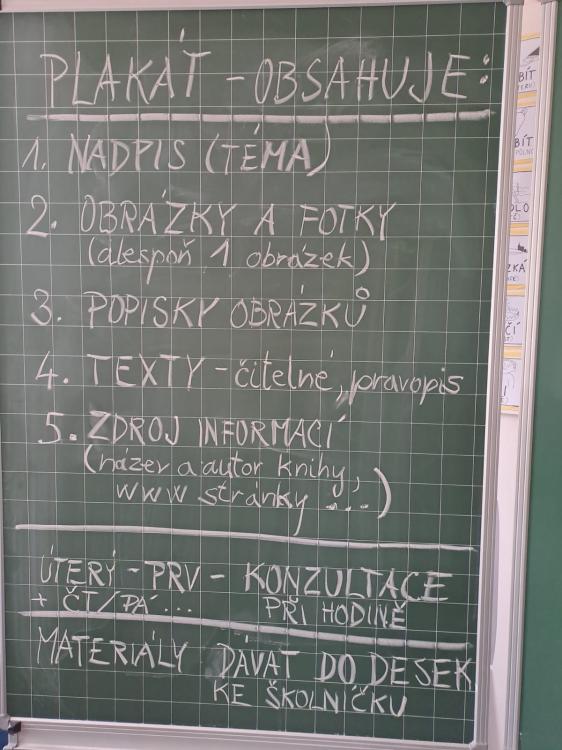 PLAKÁT - OBSAHUJE:
1. NADPIS (TÉMA)
2. OBRÁZKY A FOTKY
(alespoň 1 obrázek)
3. POPISKY OBRÁZKŮ
4. TEXTY - čitelné, pravopis
5. ZDROJ INFORMACÍ
(název a autor knihy,
www stránky ...)
ÚTERÝ - PRV - KONZULTACE
+ ČT/PÁ ... PŘI HODINĚ
MATERIÁLY DÁVAT DO DESEK
KE ŠKOLNÍČKU
BÍT
BÍT